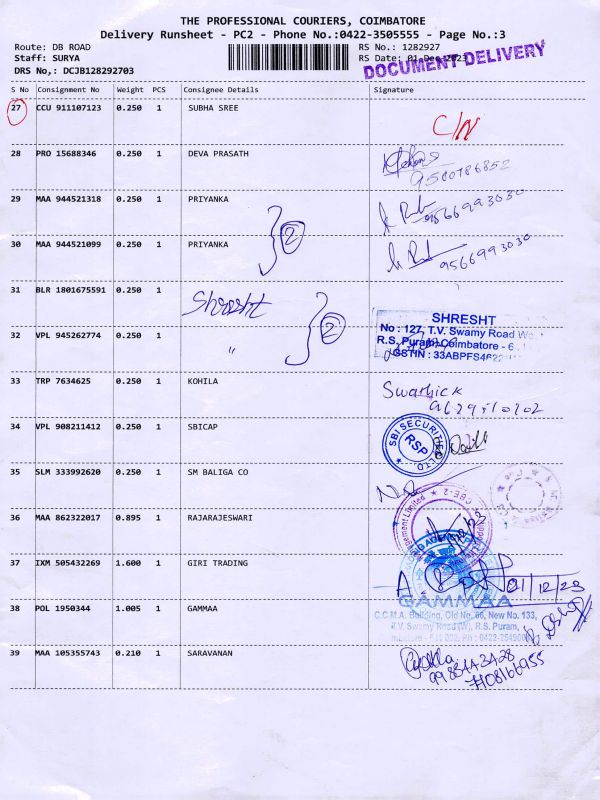 THE PROFESSIONAL COURIERS, COIMBATORE
Delivery Runsheet - PC2 - Phone No.:0422-3505555 - Page No.:3
Route: DB ROAD
Staff: SURYA
DRS No,: DCJB128292703
RS No.: 1282927
RS Date: 01-Dec-2023
DOCUMENT DELIVERY
S No Consignment No Weight PCS Consignee Details Signature
27 CCU 911107123 0.250 1 SUBHA SREE C/N
28 PRO 15688346 0.250 1 DEVA PRASATH
9500786852
29 MAA 944521318 0.250 1 PRIYANKA
9566993030
2
30 MAA 944521099 0.250 1 PRIYANKA
9566993030
31 BLR 1801675591 0.250 1 Shresht
SHRESHT
No : 127, T.V. Swamy Road
R.S. Puram, Coimbatore - 6
GSTIN : 33ABPFS4622
2
32 VPL 945262774 0.250 1 "
33 TRP 7634625 0.250 1 KOHILA Swathick
34 VPL 908211412 0.250 1 SBICAP
SBI SECURITIES LTD
RSP
35 SLM 333992620 0.250 1 SM BALIGA CO
CBE-2
36 MAA 862322017 0.895 1 RAJARAJESWARI
37 IXM 505432269 1.600 1 GIRI TRADING
01/12/23
38 POL 1950344 1.005 1 GAMMAA
GAMMAA
C.C.M.A. Building, Old No. 66, New No. 133,
T.V. Swamy Road (W), R.S. Puram,
39 MAA 105355743 0.210 1 SARAVANAN
9988443428
7708166955